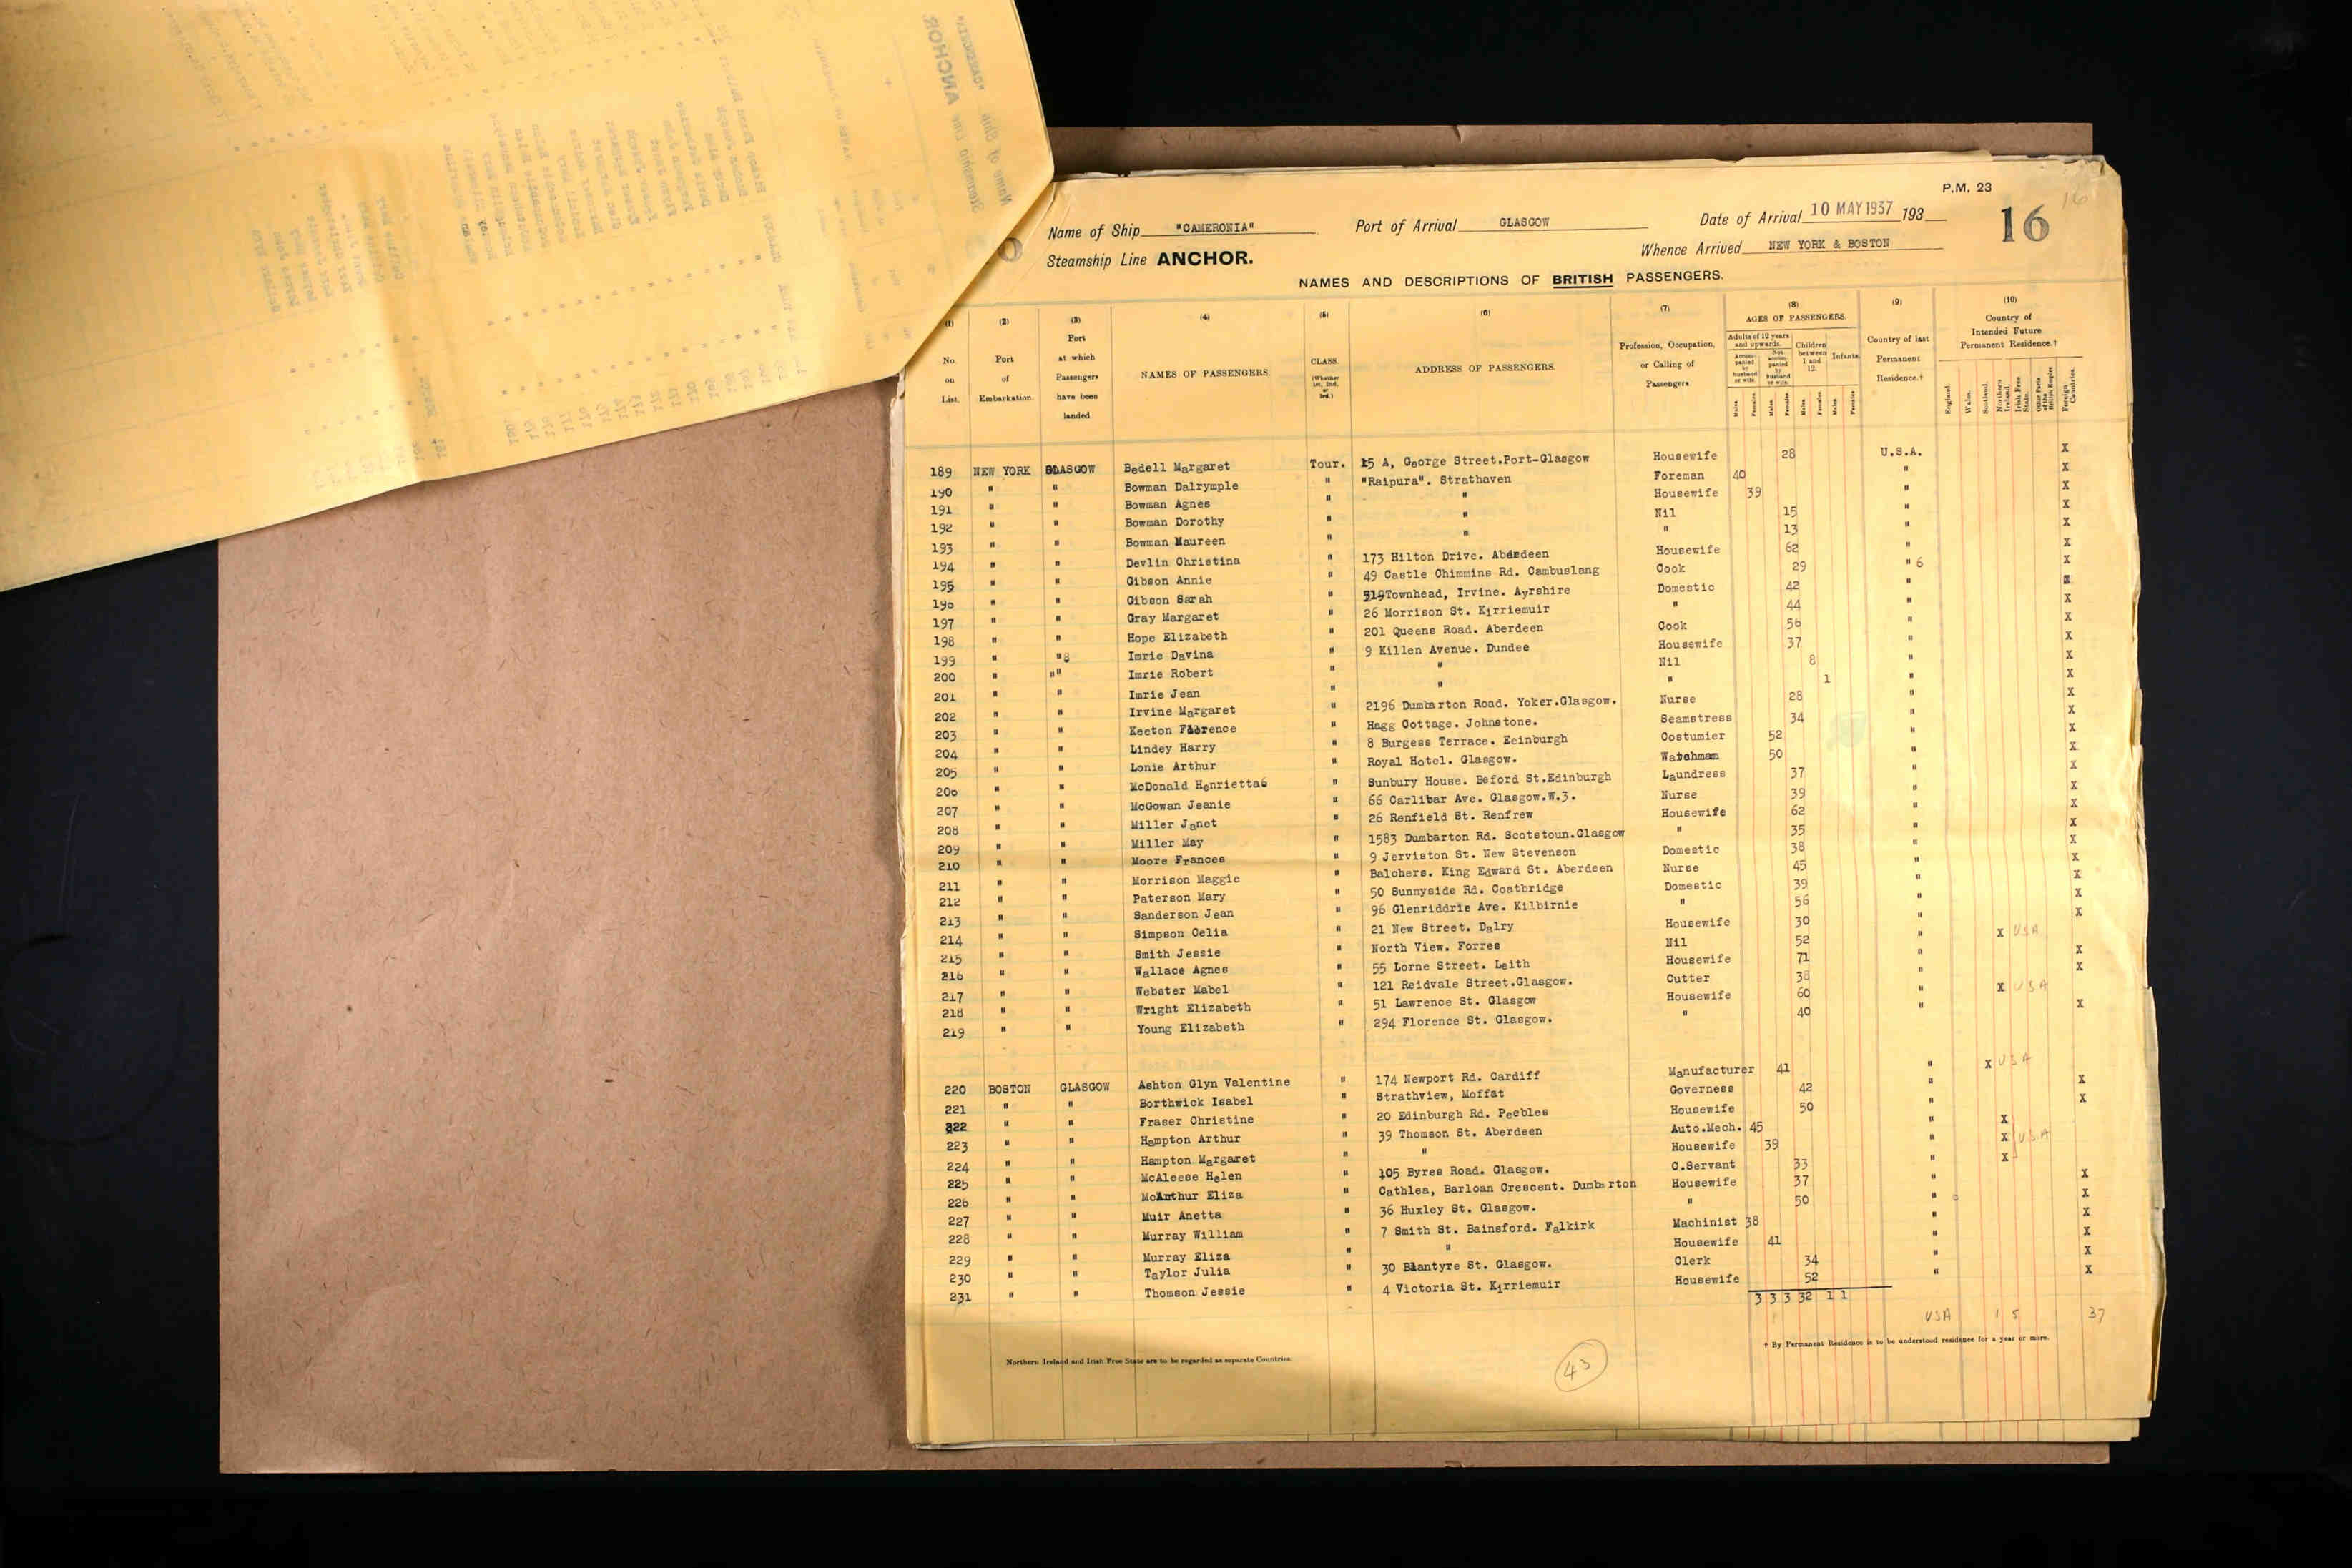 P.M. 23
16
16
Name of Ship "CAMERONIA" Port of Arrival GLASGOW Date of Arrival 10 MAY 1937 193
Steamship Line ANCHOR. Whence Arrived NEW YORK & BOSTON
NAMES AND DESCRIPTIONS OF BRITISH PASSENGERS.
(1) (2) (3) (4) (5) (6) (7) (8) (9) (10)
No. on List. Port of Embarkation. Port at which Passengers have been landed NAMES OF PASSENGERS. CLASS. (Whether 1st, 2nd, or 3rd.) ADDRESS OF PASSENGERS. Profession, Occupation, or Calling of Passengers. AGES OF PASSENGERS. Adults of 12 years and upwards. Accompanied by husband or wife. Not accompanied by husband or wife. Children between 1 and 12. Infants. Males. Females. Males. Females. Males. Females. Males. Females. Country of last Permanent Residence.† Country of Intended Future Permanent Residence.† England. Wales. Scotland. Northern Ireland. Irish Free State. Other Parts of the British Empire Foreign Countries.
189 NEW YORK GLASGOW Bedell Margaret Tour. 15 A, George Street.Port-Glasgow Housewife 28 U.S.A. X
190 " " Bowman Dalrymple " "Raipura". Strathaven Foreman 40 " X
191 " " Bowman Agnes " " Housewife 39 " X
192 " " Bowman Dorothy " " Nil 15 " X
193 " " Bowman Maureen " " " 13 " X
194 " " Devlin Christina " 173 Hilton Drive. Aberdeen Housewife 62 " X
195 " " Gibson Annie " 49 Castle Chimmins Rd. Cambuslang Cook 29 " 6 X
196 " " Gibson Sarah " 519Townhead, Irvine. Ayrshire Domestic 42 " X
197 " " Gray Margaret " 26 Morrison St. Kirriemuir " 44 " X
198 " " Hope Elizabeth " 201 Queens Road. Aberdeen Cook 56 " X
199 " "8 Imrie Davina " 9 Killen Avenue. Dundee Housewife 37 " X
200 " "" Imrie Robert " " Nil 8 " X
201 " " Imrie Jean " " " 1 " X
202 " " Irvine Margaret " 2196 Dumbarton Road. Yoker.Glasgow. Nurse 28 " X
203 " " Keeton Florence " Hagg Cottage. Johnstone. Seamstress 34 " X
204 " " Lindey Harry " 8 Burgess Terrace. Eeinburgh Costumier 52 " X
205 " " Lonie Arthur " Royal Hotel. Glasgow. Watchman 50 " X
206 " " McDonald Henrietta6 " Sunbury House. Beford St.Edinburgh Laundress 37 " X
207 " " McGowan Jeanie " 66 Carlibar Ave. Glasgow.W.3. Nurse 39 " X
208 " " Miller Janet " 26 Renfield St. Renfrew Housewife 62 " X
209 " " Miller May " 1583 Dumbarton Rd. Scotstoun.Glasgow " 35 " X
210 " " Moore Frances " 9 Jerviston St. New Stevenson Domestic 38 " X
211 " " Morrison Maggie " Balchers. King Edward St. Aberdeen Nurse 45 " X
212 " " Paterson Mary " 50 Sunnyside Rd. Coatbridge Domestic 39 " X
213 " " Sanderson Jean " 96 Glenriddrie Ave. Kilbirnie " 56 " X
214 " " Simpson Celia " 21 New Street. Dalry Housewife 30 " X
215 " " Smith Jessie " North View. Forres Nil 52 " X USA
216 " " Wallace Agnes " 55 Lorne Street. Leith Housewife 71 " X
217 " " Webster Mabel " 121 Reidvale Street.Glasgow. Cutter 38 " X
218 " " Wright Elizabeth " 51 Lawrence St. Glasgow Housewife 60 " X USA
219 " " Young Elizabeth " 294 Florence St. Glasgow. " 40 " X
220 BOSTON GLASGOW Ashton Glyn Valentine " 174 Newport Rd. Cardiff Manufacturer 41 " X USA
221 " " Borthwick Isabel " Strathview, Moffat Governess 42 " X
222 " " Fraser Christine " 20 Edinburgh Rd. Peebles Housewife 50 " X
223 " " Hampton Arthur " 39 Thomson St. Aberdeen Auto.Mech. 45 " X
224 " " Hampton Margaret " " Housewife 39 " X USA
225 " " McAleese Helen " 105 Byres Road. Glasgow. C.Servant 33 " X
226 " " McArthur Eliza " Cathlea, Barloan Crescent. Dumbarton Housewife 37 " X
227 " " Muir Anetta " 36 Huxley St. Glasgow. " 50 " X
228 " " Murray William " 7 Smith St. Bainsford. Falkirk Machinist 38 " X
229 " " Murray Eliza " " Housewife 41 " X
230 " " Taylor Julia " 30 Blantyre St. Glasgow. Clerk 34 " X
231 " " Thomson Jessie " 4 Victoria St. Kirriemuir Housewife 52 " X
3 3 3 32 1 1
USA 1 5 37
† By Permanent Residence is to be understood residence for a year or more.
Northern Ireland and Irish Free State are to be regarded as separate Countries.
43